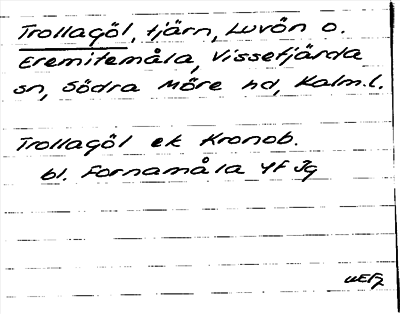 Trollagöl, tjärn, Luvön o.
Eremitemåla, Vissefjärda
sn, Södra Möre hd, Kalm.l.
Trollagöl ek Kronob.
bl. Fornamåla 4f Jg